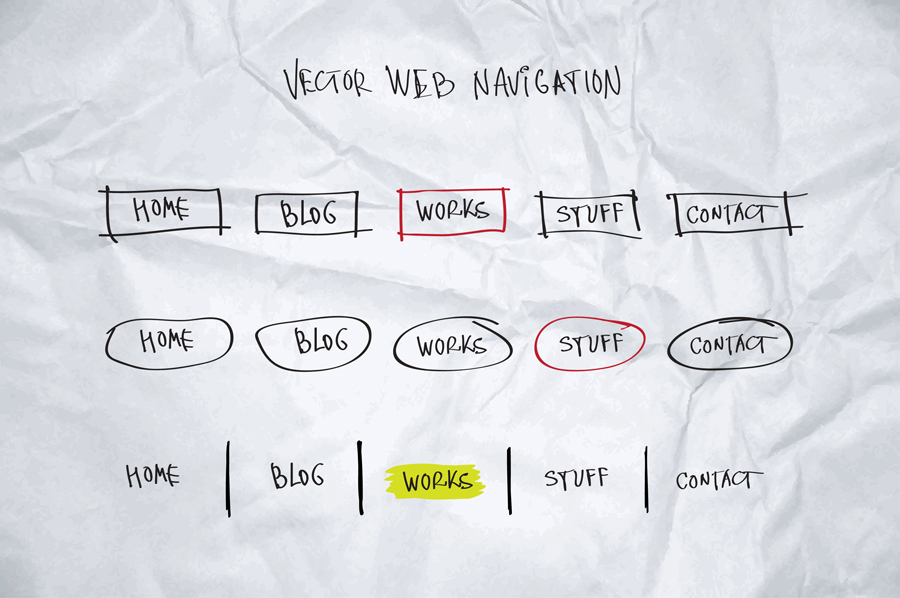 VECTOR WEB NAVIGATION
HOME BLOG WORKS STUFF CONTACT
HOME BLOG WORKS STUFF CONTACT
HOME BLOG WORKS STUFF CONTACT